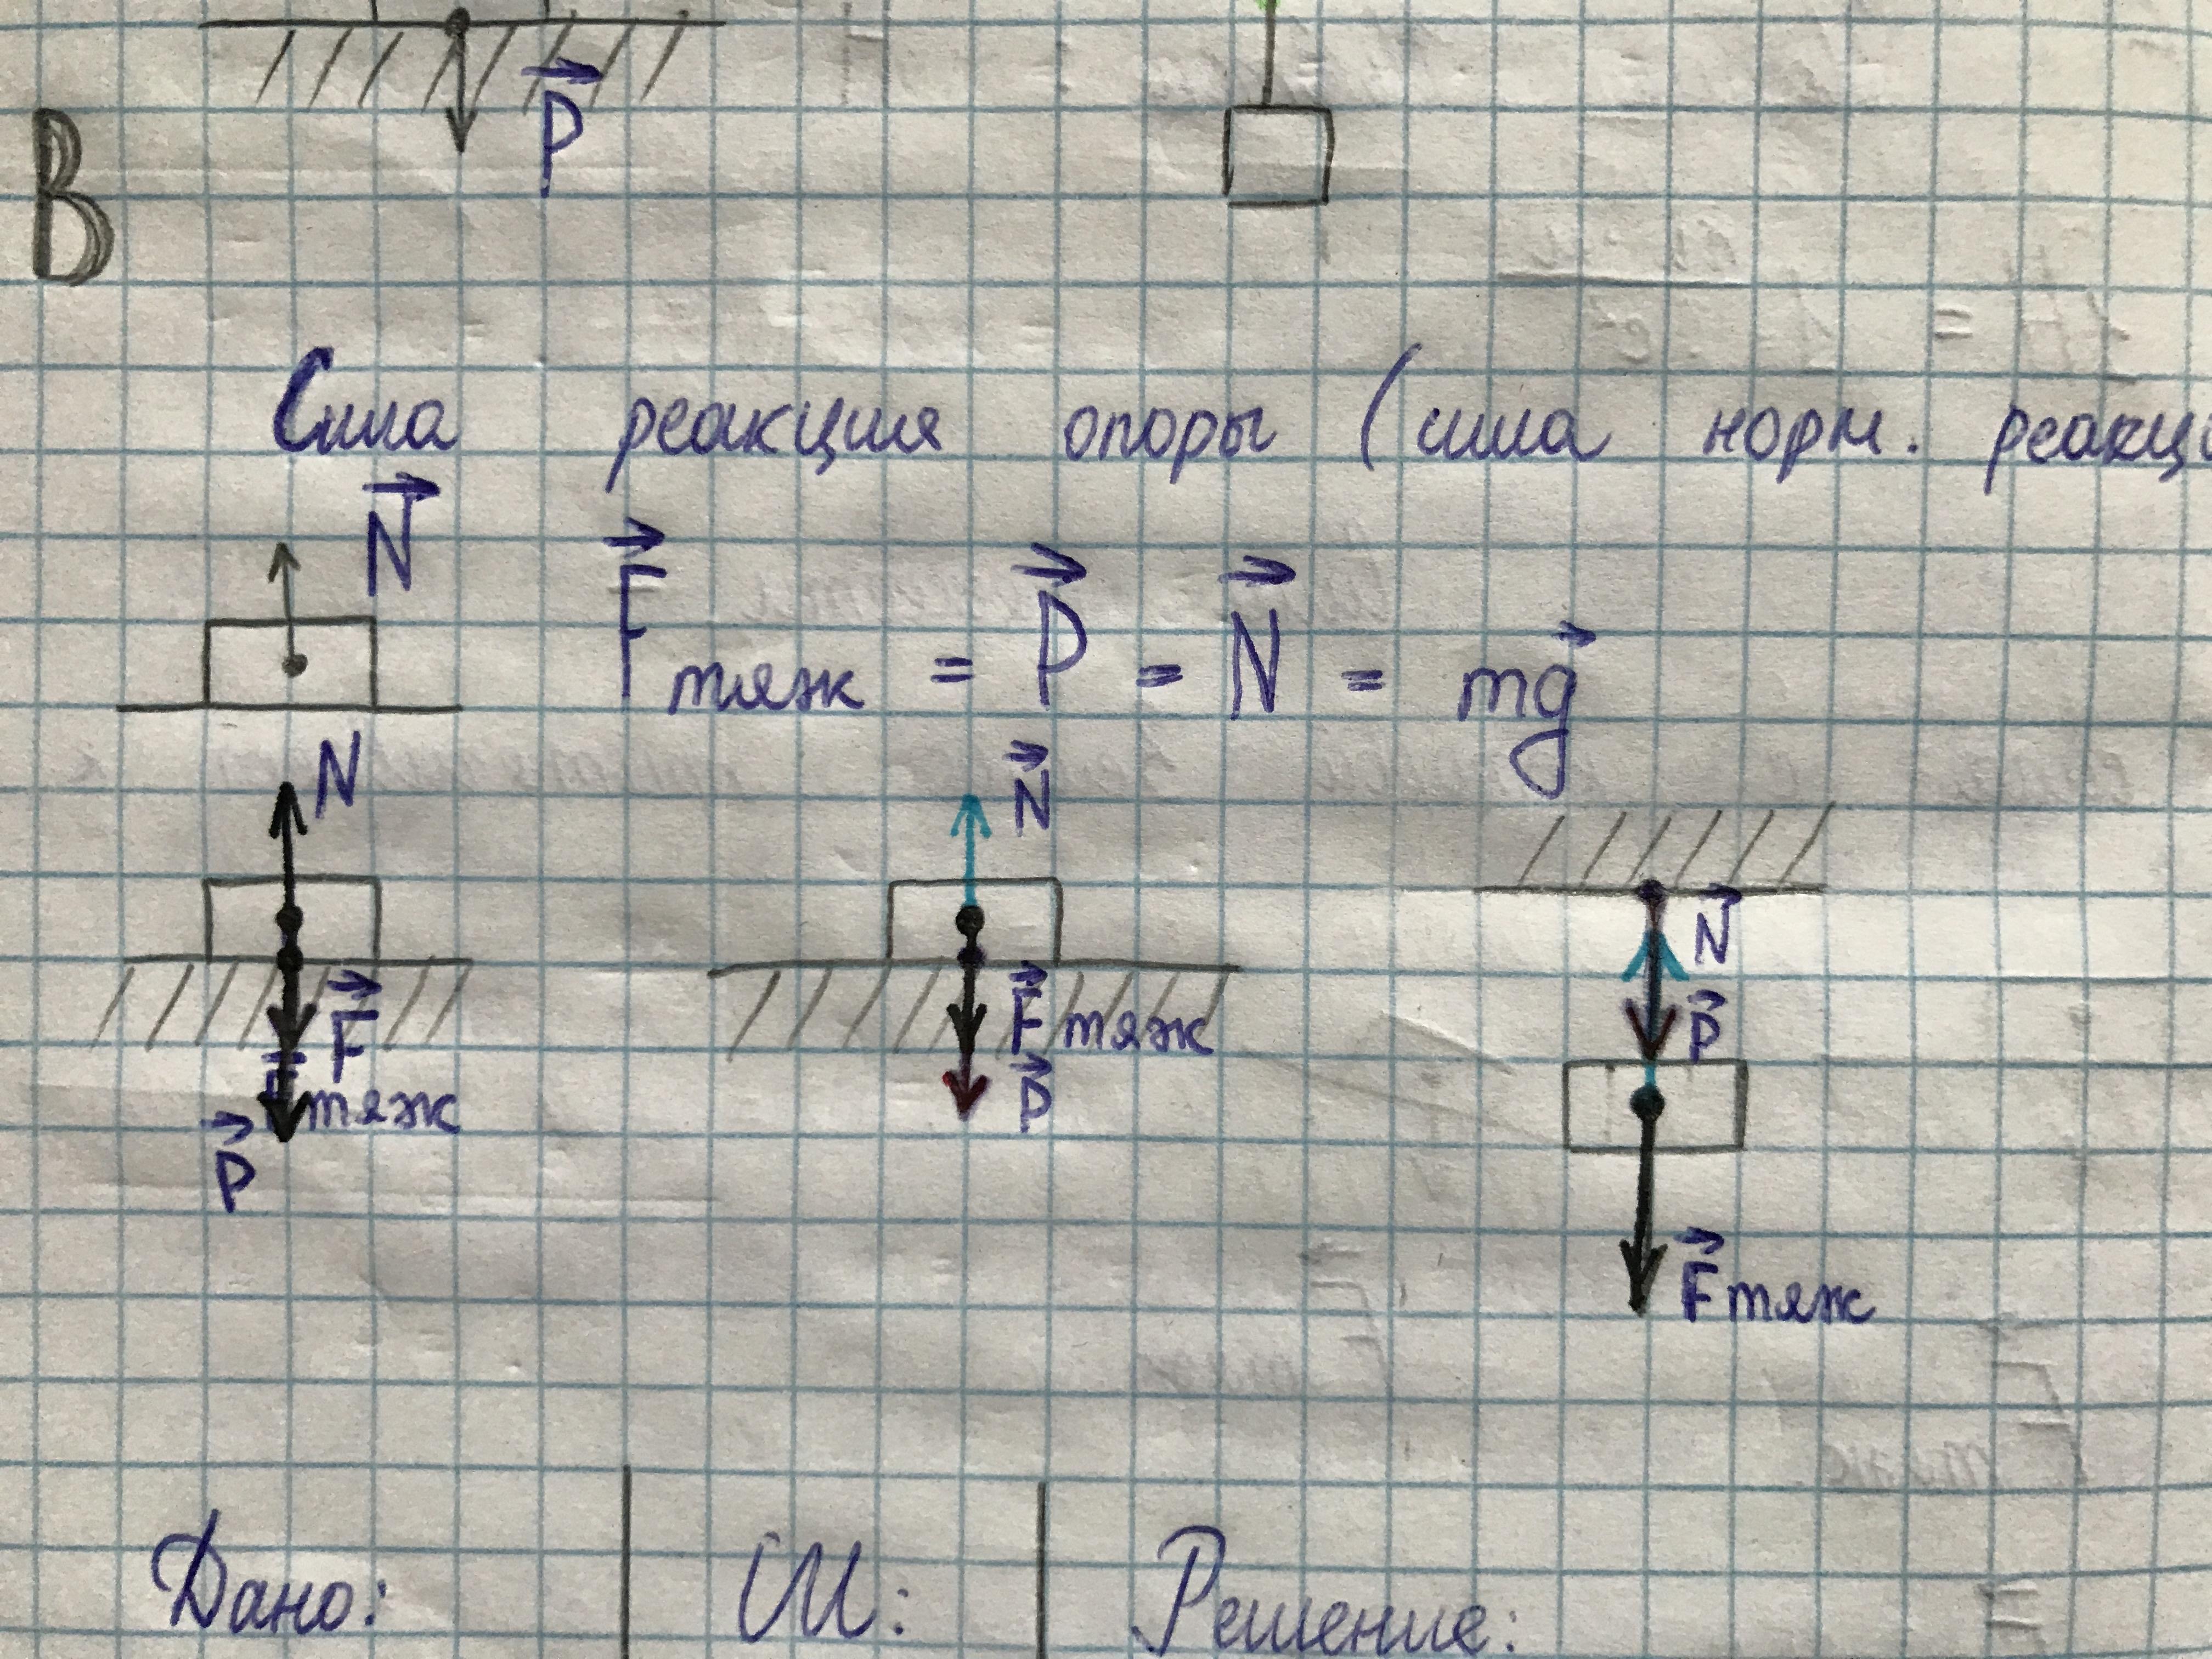 P
В
Сила реакция опоры (сила норм. реакц
N
F тяж = P = N = mg
N
N
N
F
F тяж
P
F тяж
P
P
F тяж
Дано: СИ: Решение: